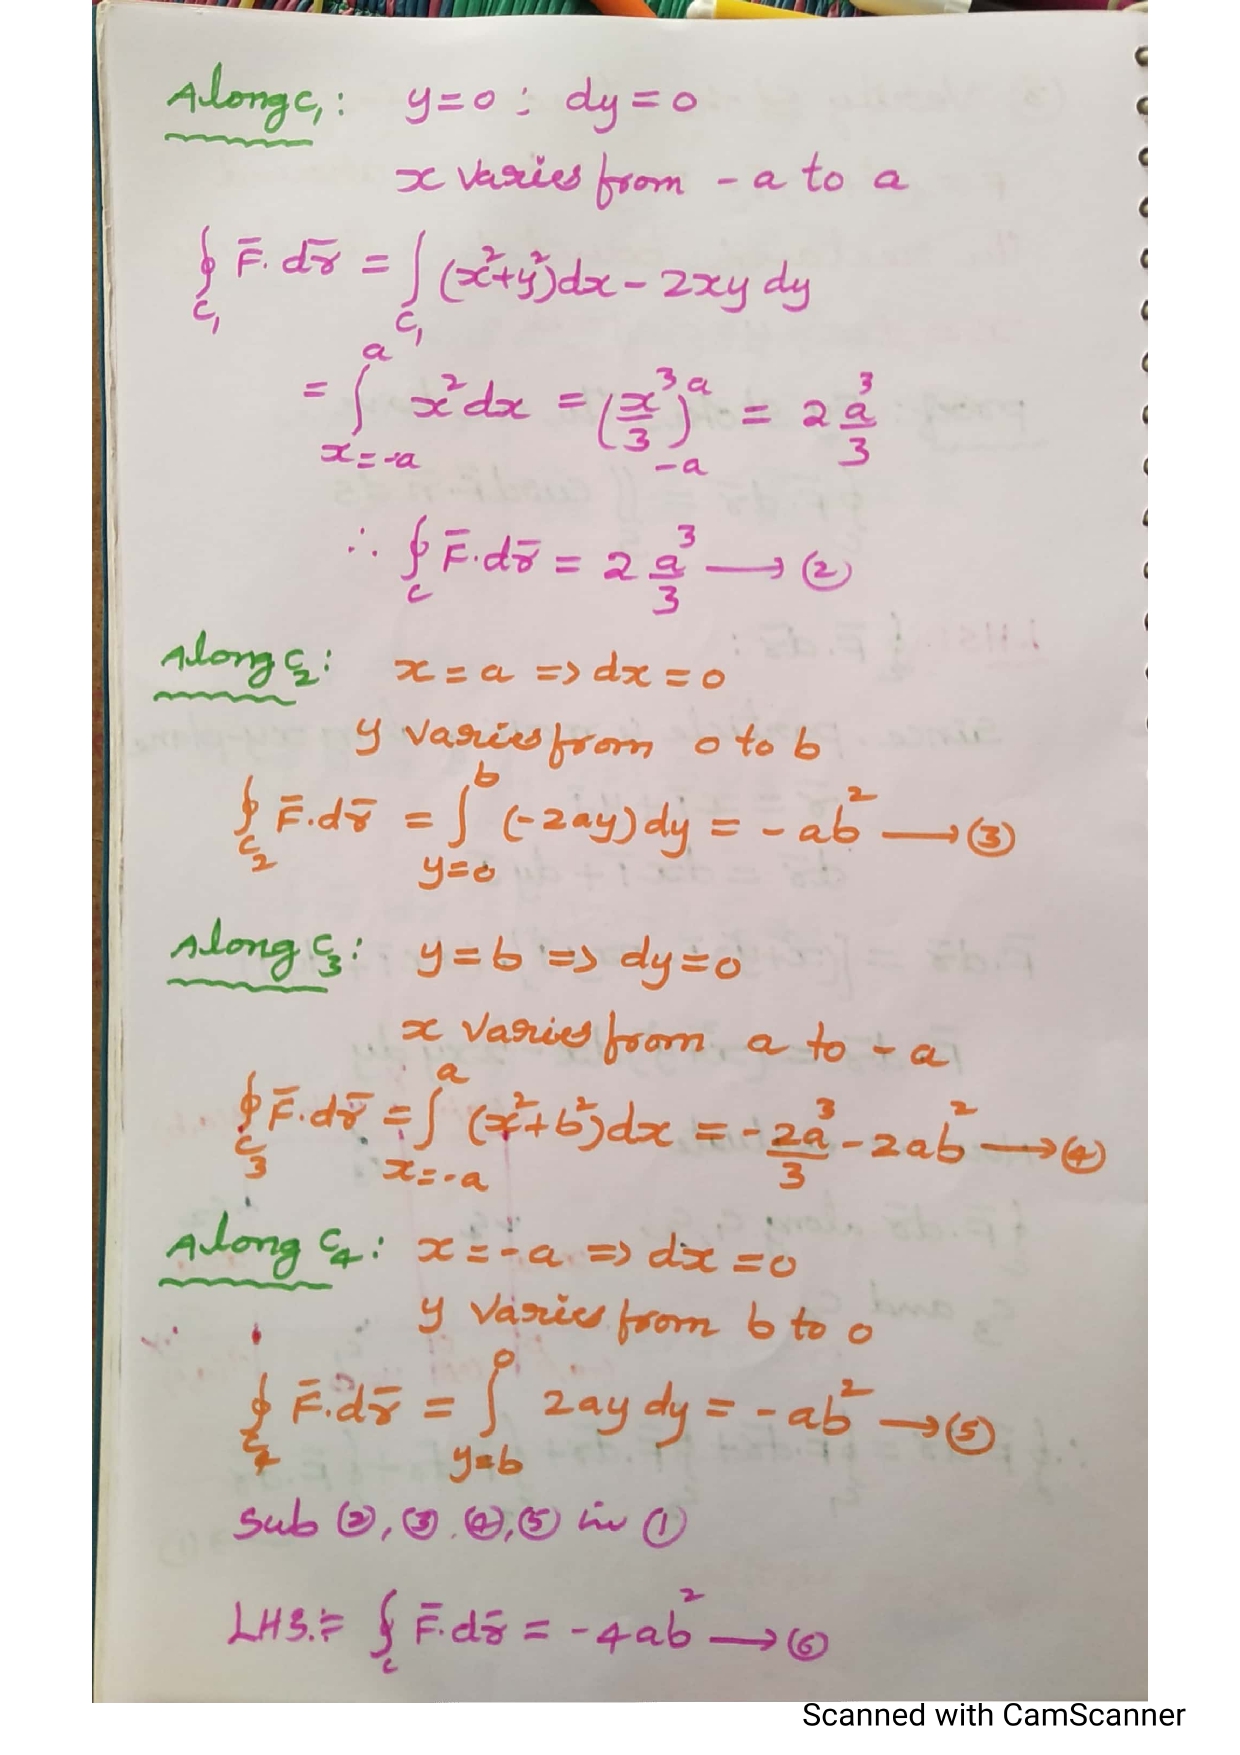 Along C₁: y=0 : dy=0
x varies from -a to a
∮_C₁ F̄.dr̄ = ∫_C₁ (x²+y²)dx - 2xy dy
= ∫_{x=-a}^{a} x² dx = (x³/3)_{-a}^{a} = 2 a³/3
∴ ∮_c F̄.dr̄ = 2 a³/3 → ②
Along C₂: x = a => dx = 0
y varies from 0 to b
∮_C₂ F̄.dr̄ = ∫_{y=0}^{b} (-2ay) dy = -ab² → ③
Along C₃: y = b => dy=0
x varies from a to -a
∮_C₃ F̄.dr̄ = ∫_{x=-a}^{a} (x²+b²)dx = -2a³/3 - 2ab² → ④
Along C₄: x = -a => dx = 0
y varies from b to 0
∮_C₄ F̄.dr̄ = ∫_{y=b}^{0} 2ay dy = -ab² → ⑤
Sub ②, ③, ④, ⑤ in ①
LHS.= ∮_c F̄.dr̄ = -4ab² → ⑥
Scanned with CamScanner